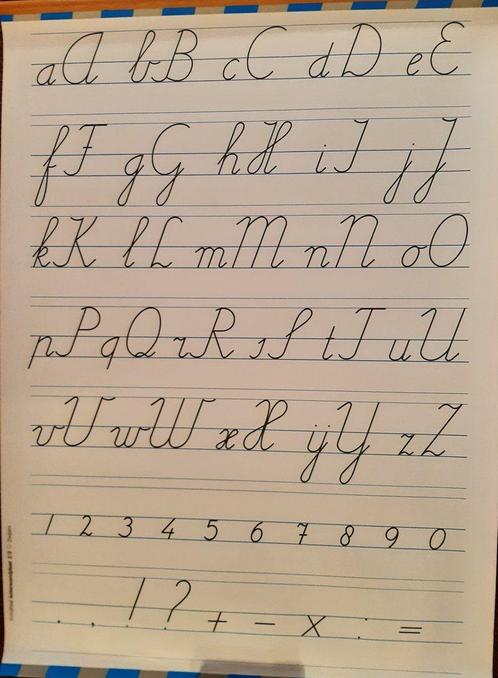 aA bB cC dD eE
fF gG hH iI jJ
kK lL mM nN oO
pP qQ rR sS tT uU
vV wW xX ijY zZ
1 2 3 4 5 6 7 8 9 0
. , ! ? + - x : =